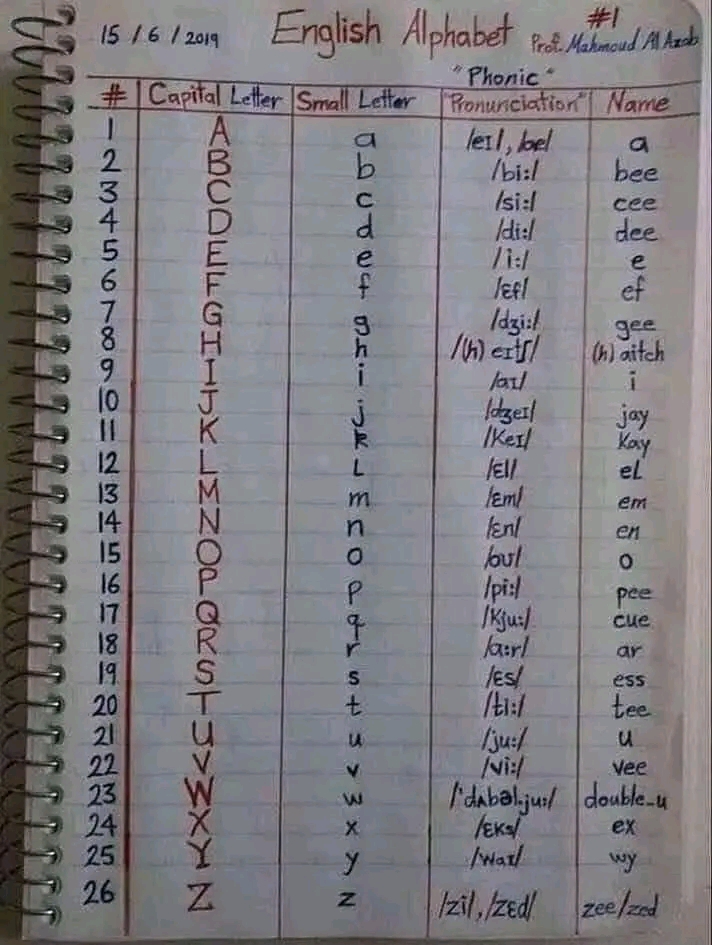 15 / 6 / 2019 English Alphabet #1
Prof. Mahmoud Al Azab
"Phonic"
# Capital Letter Small Letter "Pronunciation" Name
1 A a /eɪ/, /æ/ a
2 B b /bi:/ bee
3 C c /si:/ cee
4 D d /di:/ dee
5 E e /i:/ e
6 F f /ɛf/ ef
7 G g /dʒi:/ gee
8 H h /(h) eɪtʃ/ (h) aitch
9 I i /aɪ/ i
10 J j /dʒeɪ/ jay
11 K k /keɪ/ kay
12 L L /ɛl/ eL
13 M m /ɛm/ em
14 N n /ɛn/ en
15 O o /oʊ/ o
16 P p /pi:/ pee
17 Q q /kju:/ cue
18 R r /ɑ:r/ ar
19 S s /ɛs/ ess
20 T t /ti:/ tee
21 U u /ju:/ u
22 V v /vi:/ vee
23 W w /'dʌbəl.ju:/ double_u
24 X x /ɛks/ ex
25 Y y /waɪ/ wy
26 Z z /zi/, /zɛd/ zee/zed